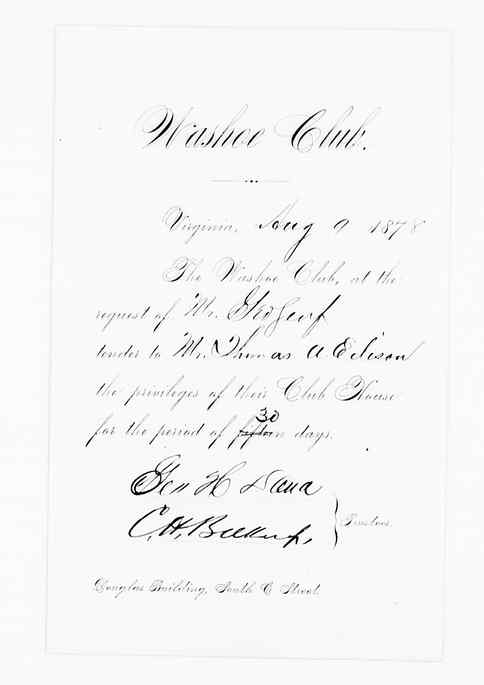 Washoe Club.
Virginia, Aug 9 1878
The Washoe Club, at the
request of Mr. Geo
tender to Mr. Thomas A Edison
the privileges of their Club House
for the period of fifteen 30 days.
Geo H Dana
C. H.
Trustees.
Douglas Building, South C Street.